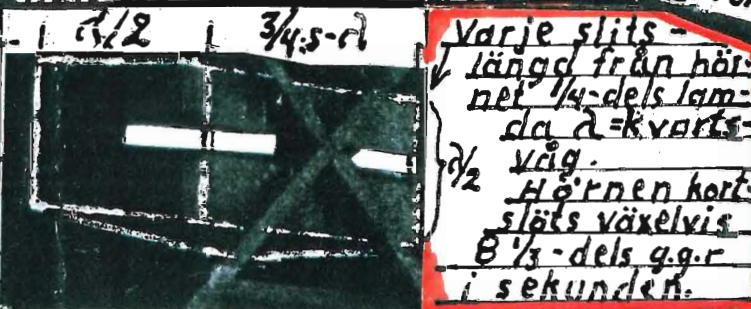 λ/2 3/4:s-λ
Varje slits-
längd från hör-
net 1/4-dels lam-
da λ=kvarts-
våg.
λ/2
Hörnen kort-
slöts växelvis
8 1/3-dels g.g.r
i sekunden.